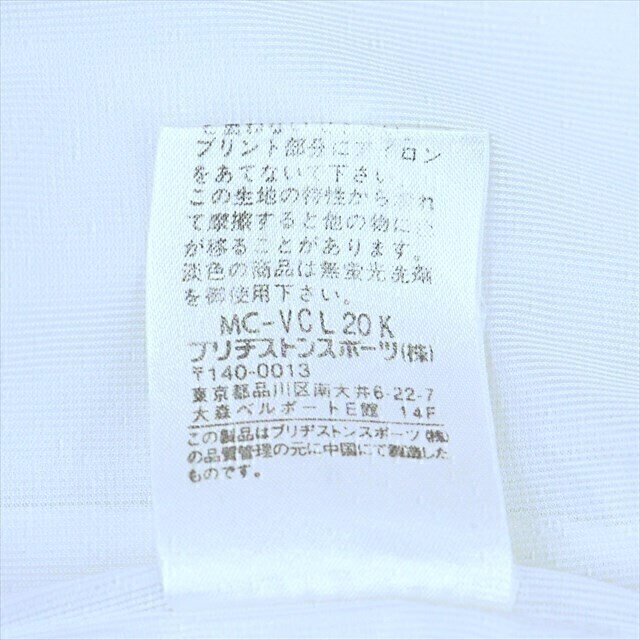 プリント部分にアイロン
をあてないで下さい
この生地の特性から濡れ
て摩擦すると他の物に色
が移ることがあります。
淡色の商品は無蛍光洗剤
を御使用下さい。
MC-VCL20K
ブリヂストンスポーツ(株)
〒140-0013
東京都品川区南大井6-22-7
大森ベルポートE館 14F
この製品はブリヂストンスポーツ(株)
の品質管理の元に中国にて製造した
ものです。